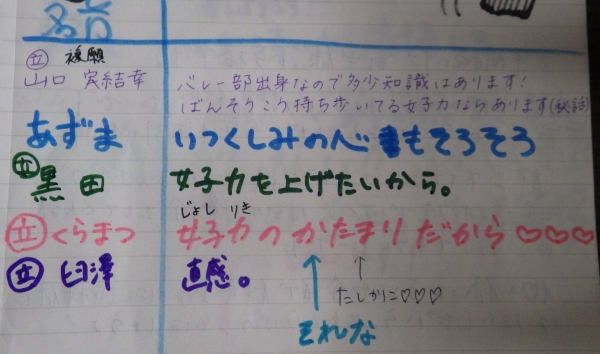 名前
立 後願
山口 実結幸 バレー部出身なので多少知識はあります!
ばんそうこう持ち歩いてる女子力ならあります(秘話)
あずま いつくしみの心もそろそろ
立 黒田 女子力を上げたいから。
じょし りき
立 くらまつ 女子力のかたまりだから♡♡♡
立 臼澤 直感。
↑ ↑
たしかに♡♡♡
それな